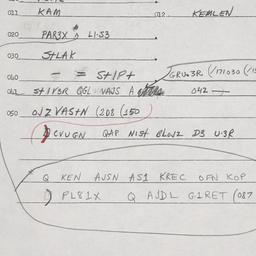 022 KAM 012 KEMLEN
020 PAR3X LI-S3
030 S+LAK
040 - = S+1P+ GRU.3R. (/171030
041 S+1V3R QGL VAJS A 042 —
050 OJZ VAS+N (208 (150
CVUGN QAP NIS+ BLOJ2 D3 U-3R
Q KEN AJSN AS1 KREC OFN KOP
PL81X Q AJDL G1RET (087